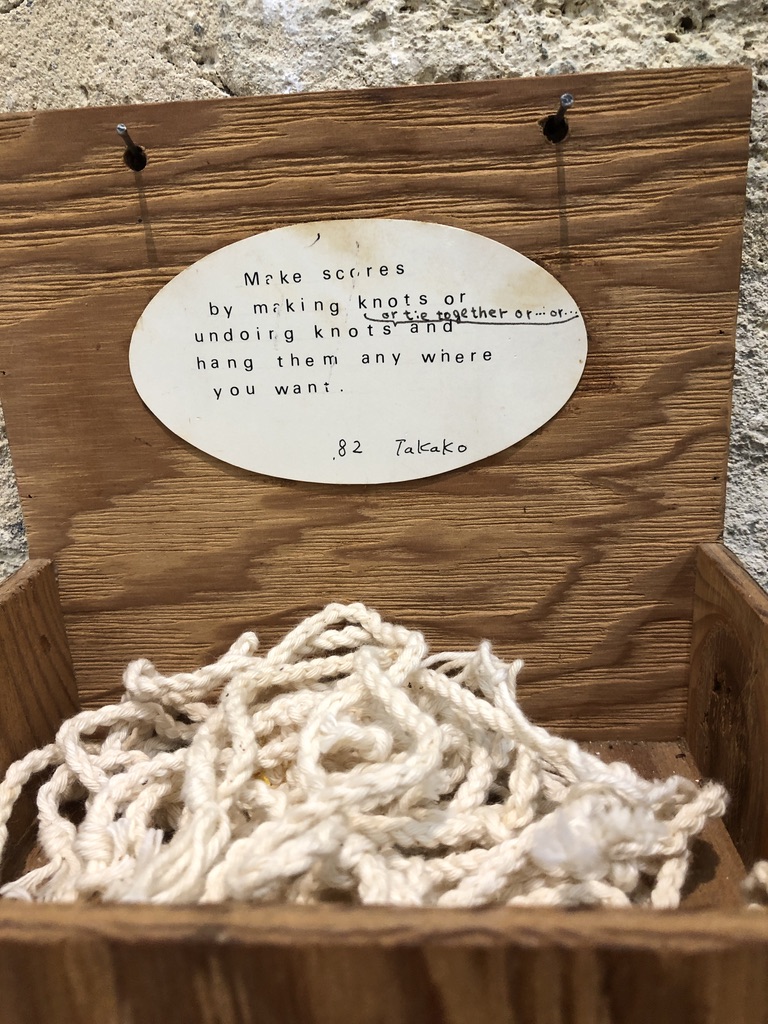 Make scores
by making knots or
or tie together or... or...
undoing knots and
hang them any where
you want.
.82 Takako